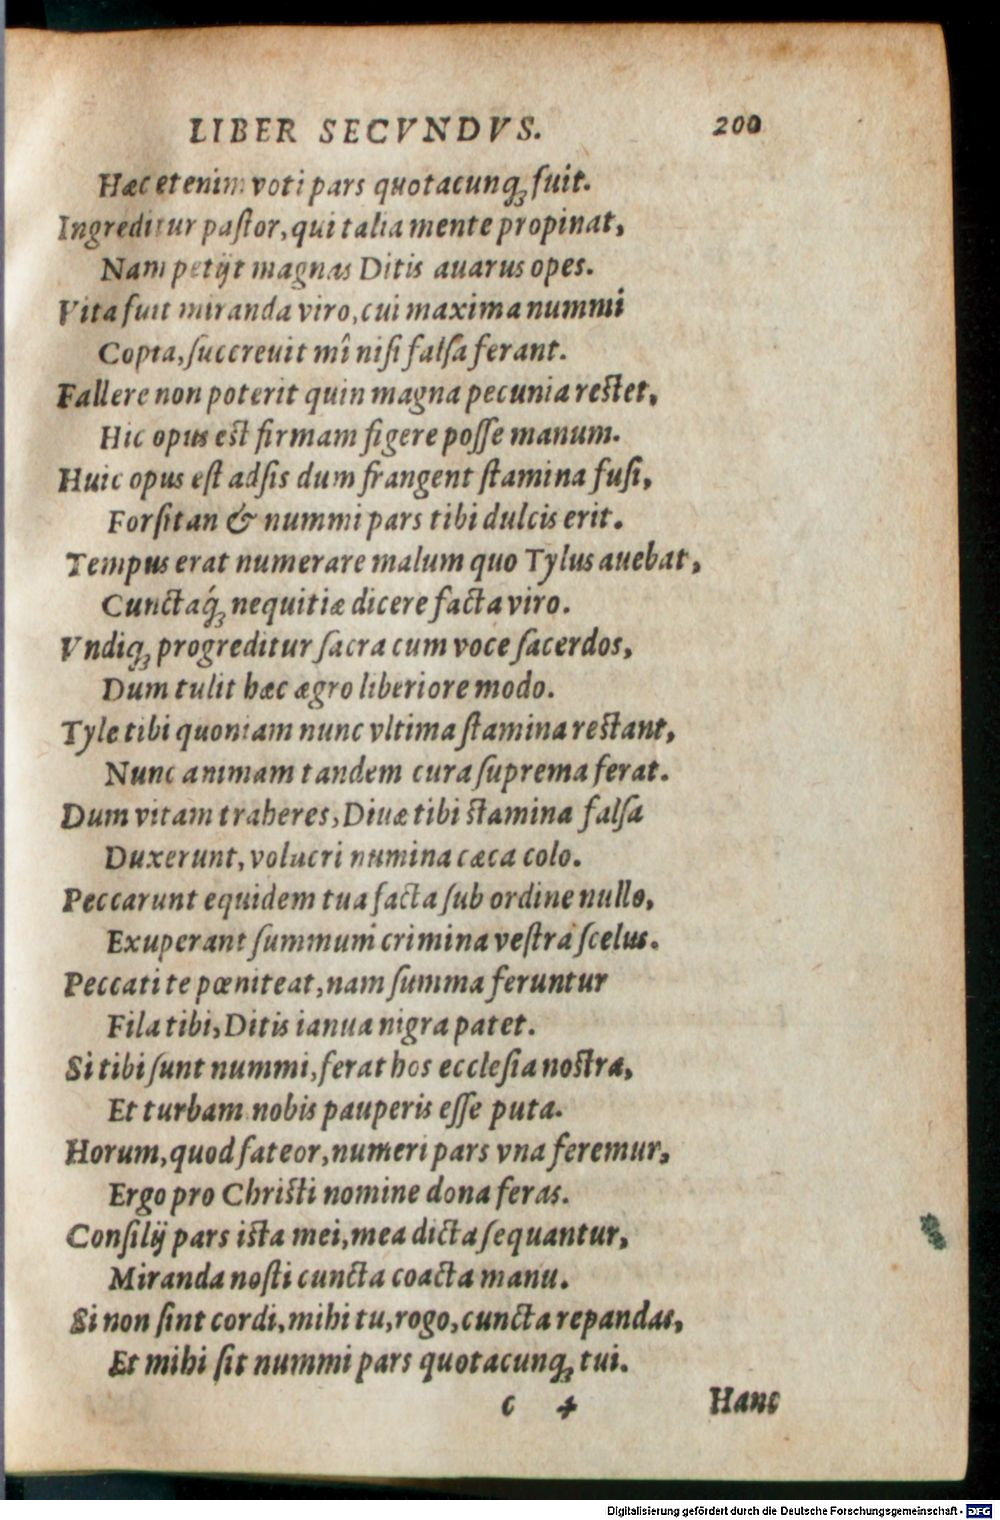 LIBER SECVNDVS. 200
Hæc etenim voti pars quotacunqꝫ fuit.
Ingreditur paſtor, qui talia mente propinat,
Nam petijt magnas Ditis auarus opes.
Vita fuit miranda viro, cui maxima nummi
Copia, ſuccreuit mî niſi falſa ferant.
Fallere non poterit quin magna pecunia reſtet,
Hic opus eſt firmam figere poſſe manum.
Huic opus eſt adſis dum frangent ſtamina fuſi,
Forſitan & nummi pars tibi dulcis erit.
Tempus erat numerare malum quo Tylus auebat,
Cunctaq́ꝫ nequitiæ dicere facta viro.
Vndiqꝫ progreditur ſacra cum voce ſacerdos,
Dum tulit hæc ægro liberiore modo.
Tyle tibi quoniam nunc vltima ſtamina reſtant,
Nunc animam tandem cura ſuprema ferat.
Dum vitam traheres, Diuæ tibi ſtamina falſa
Duxerunt, volucri numina cæca colo.
Peccarunt equidem tua facta ſub ordine nullo,
Exuperant ſummum crimina veſtra ſcelus.
Peccati te pœniteat, nam ſumma feruntur
Fila tibi, Ditis ianua nigra patet.
Si tibi ſunt nummi, ferat hos eccleſia noſtra,
Et turbam nobis pauperis eſſe puta.
Horum, quod fateor, numeri pars vna feremur,
Ergo pro Chriſti nomine dona feras.
Conſilij pars iſta mei, mea dicta ſequantur,
Miranda noſti cuncta coacta manu.
Si non ſint cordi, mihi tu, rogo, cuncta repandas,
Et mihi ſit nummi pars quotacunqꝫ tui.
c 4 Hanc
Digitalisierung gefördert durch die Deutsche Forschungsgemeinschaft - DFG